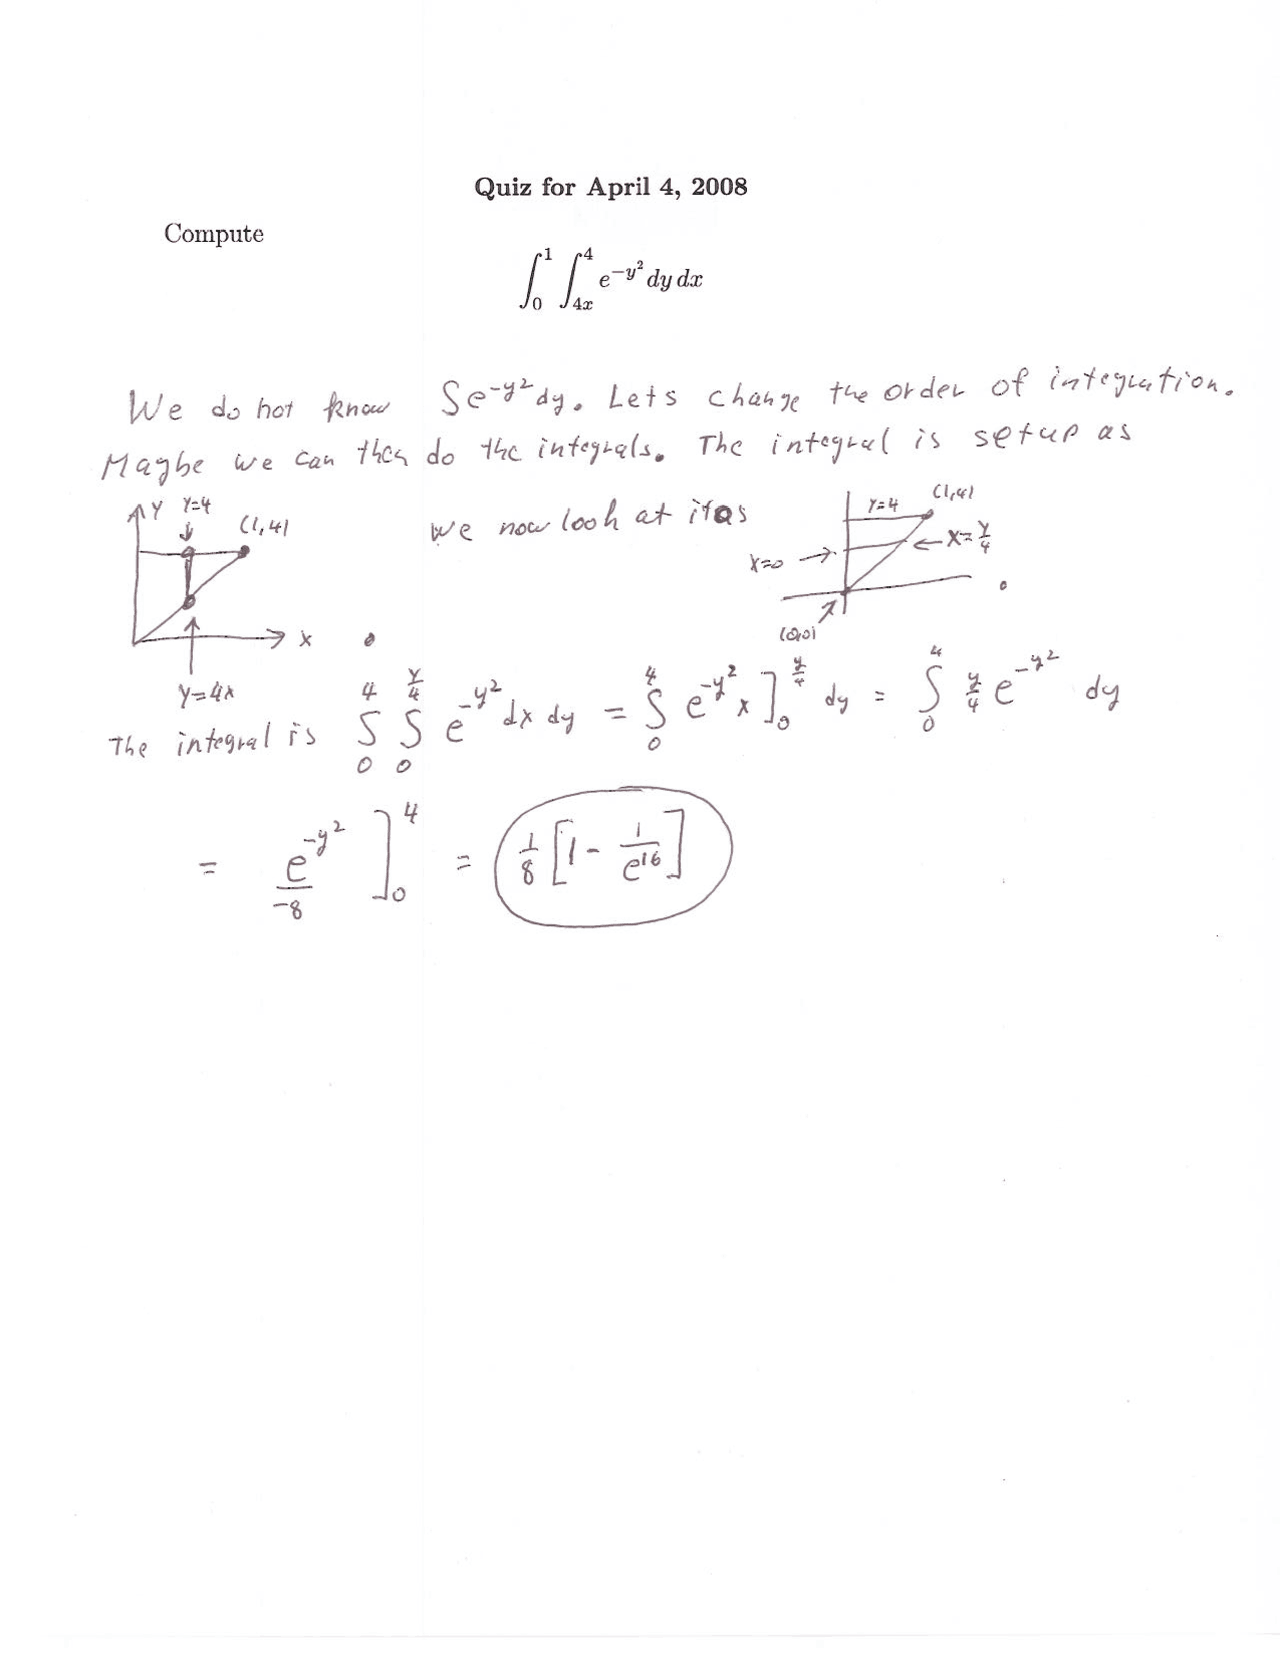 Quiz for April 4, 2008
Compute
∫₀¹ ∫₄ₓ⁴ e^{-y²} dy dx
We do not know ∫e^{-y²}dy. Lets change the order of integration.
Maybe we can then do the integrals. The integral is setup as
Y Y=4 (1,4)
X
Y=4x
We now look at it as
Y=4 (1,4)
X=0 X=Y/4
(0,0)
The integral is ∫₀⁴ ∫₀^{Y/4} e^{-y²} dx dy = ∫₀⁴ e^{-y²} x ]₀^{y/4} dy = ∫₀⁴ y/4 e^{-y²} dy
= e^{-y²}/-8 ]₀⁴ = 1/8 [1 - 1/e^{16}]